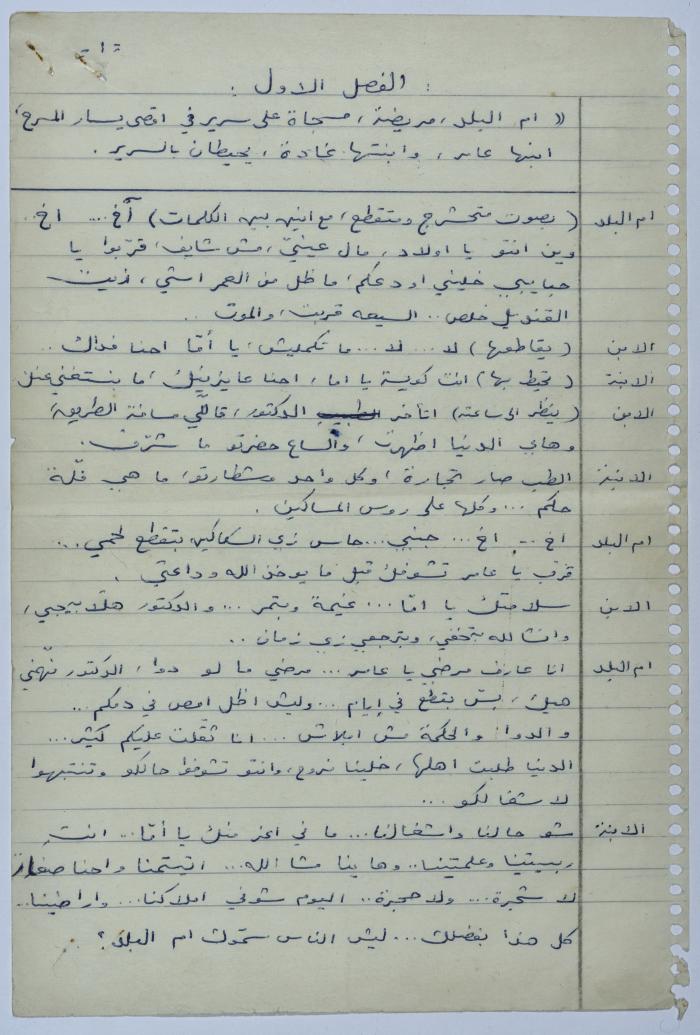 - ١ -
: الفصل الاول :
(( ام البلد، مريضة، مسجاة على سرير في اقصى يسار المسرح،
ابنها عامر، وابنتها غادة، يحيطان بالسرير.
ام البلد ( بصوت متحشرج ومتقطع، مع انين بين الكلمات) آخ... اخ..
وين انتو يا اولاد، مال عينيّ، مش شايف، قرّبوا يا
حبايبي خليني اودعكم، ما ظل من العمر اشي، زيت
القنديل خلص.. السيعه قربت، والموت ..
الابن ( يقاطعها) لا... لا... ما تكمليش، يا أمّا احنا فداك..
الابنة ( تحيط بها) انت كويسة يا اما، احنا عايزينك، ما بنستغني عنك
الابن ( ينظر الى ساعته) اتأخر الطبيب الدكتور، قاللّي مسافة الطريق،
وهاي الدنيا اظهرت، والساع حضرتو ما شرّف.
الابنة الطب صار تجارة، وكل واحد وشطارتو، ما هي قلّة
حكم... وكلها على روس المساكين.
ام البلد اخ ... اخ... جنبي... حاسس زي السكاكين بتقطع لحمي...
قرّب يا عامر تشوفك قبل ما يوخذ الله وداعتي.
الابن سلامتك يا امّا... غيمة وبتمر... والدكتور هلّا بيجي،
وانشالله بتخفي، وبترجعي زي زمان..
ام البلد انا عارف مرضي يا عامر... مرضي ما لو دوا، الدكتور فهّمني
هيك، بس بقطع في إيام... وليش اظل امص في دمكم...
والدوا والحكمة مش ابلاش... انا ثقّلت عليكم كثير...
الدنيا طلبت اهلها، خلينا نروح، وانتو تشوفوا حالكو وتنتبهوا
لاشغالكو ...
الابنة شو حالنا واشغالنا... ما في اعز منك يا أمّا... انتِ
ربيتينا وعلمتينا.. وهاينا مشا الله... اتيتمنا واحنا صغار
لا شجرة... ولا حجرة.. اليوم شوفي املاكنا... واراضينا..
كل هذا بفضلك... ليش الناس سمّوك ام البلد؟ ..